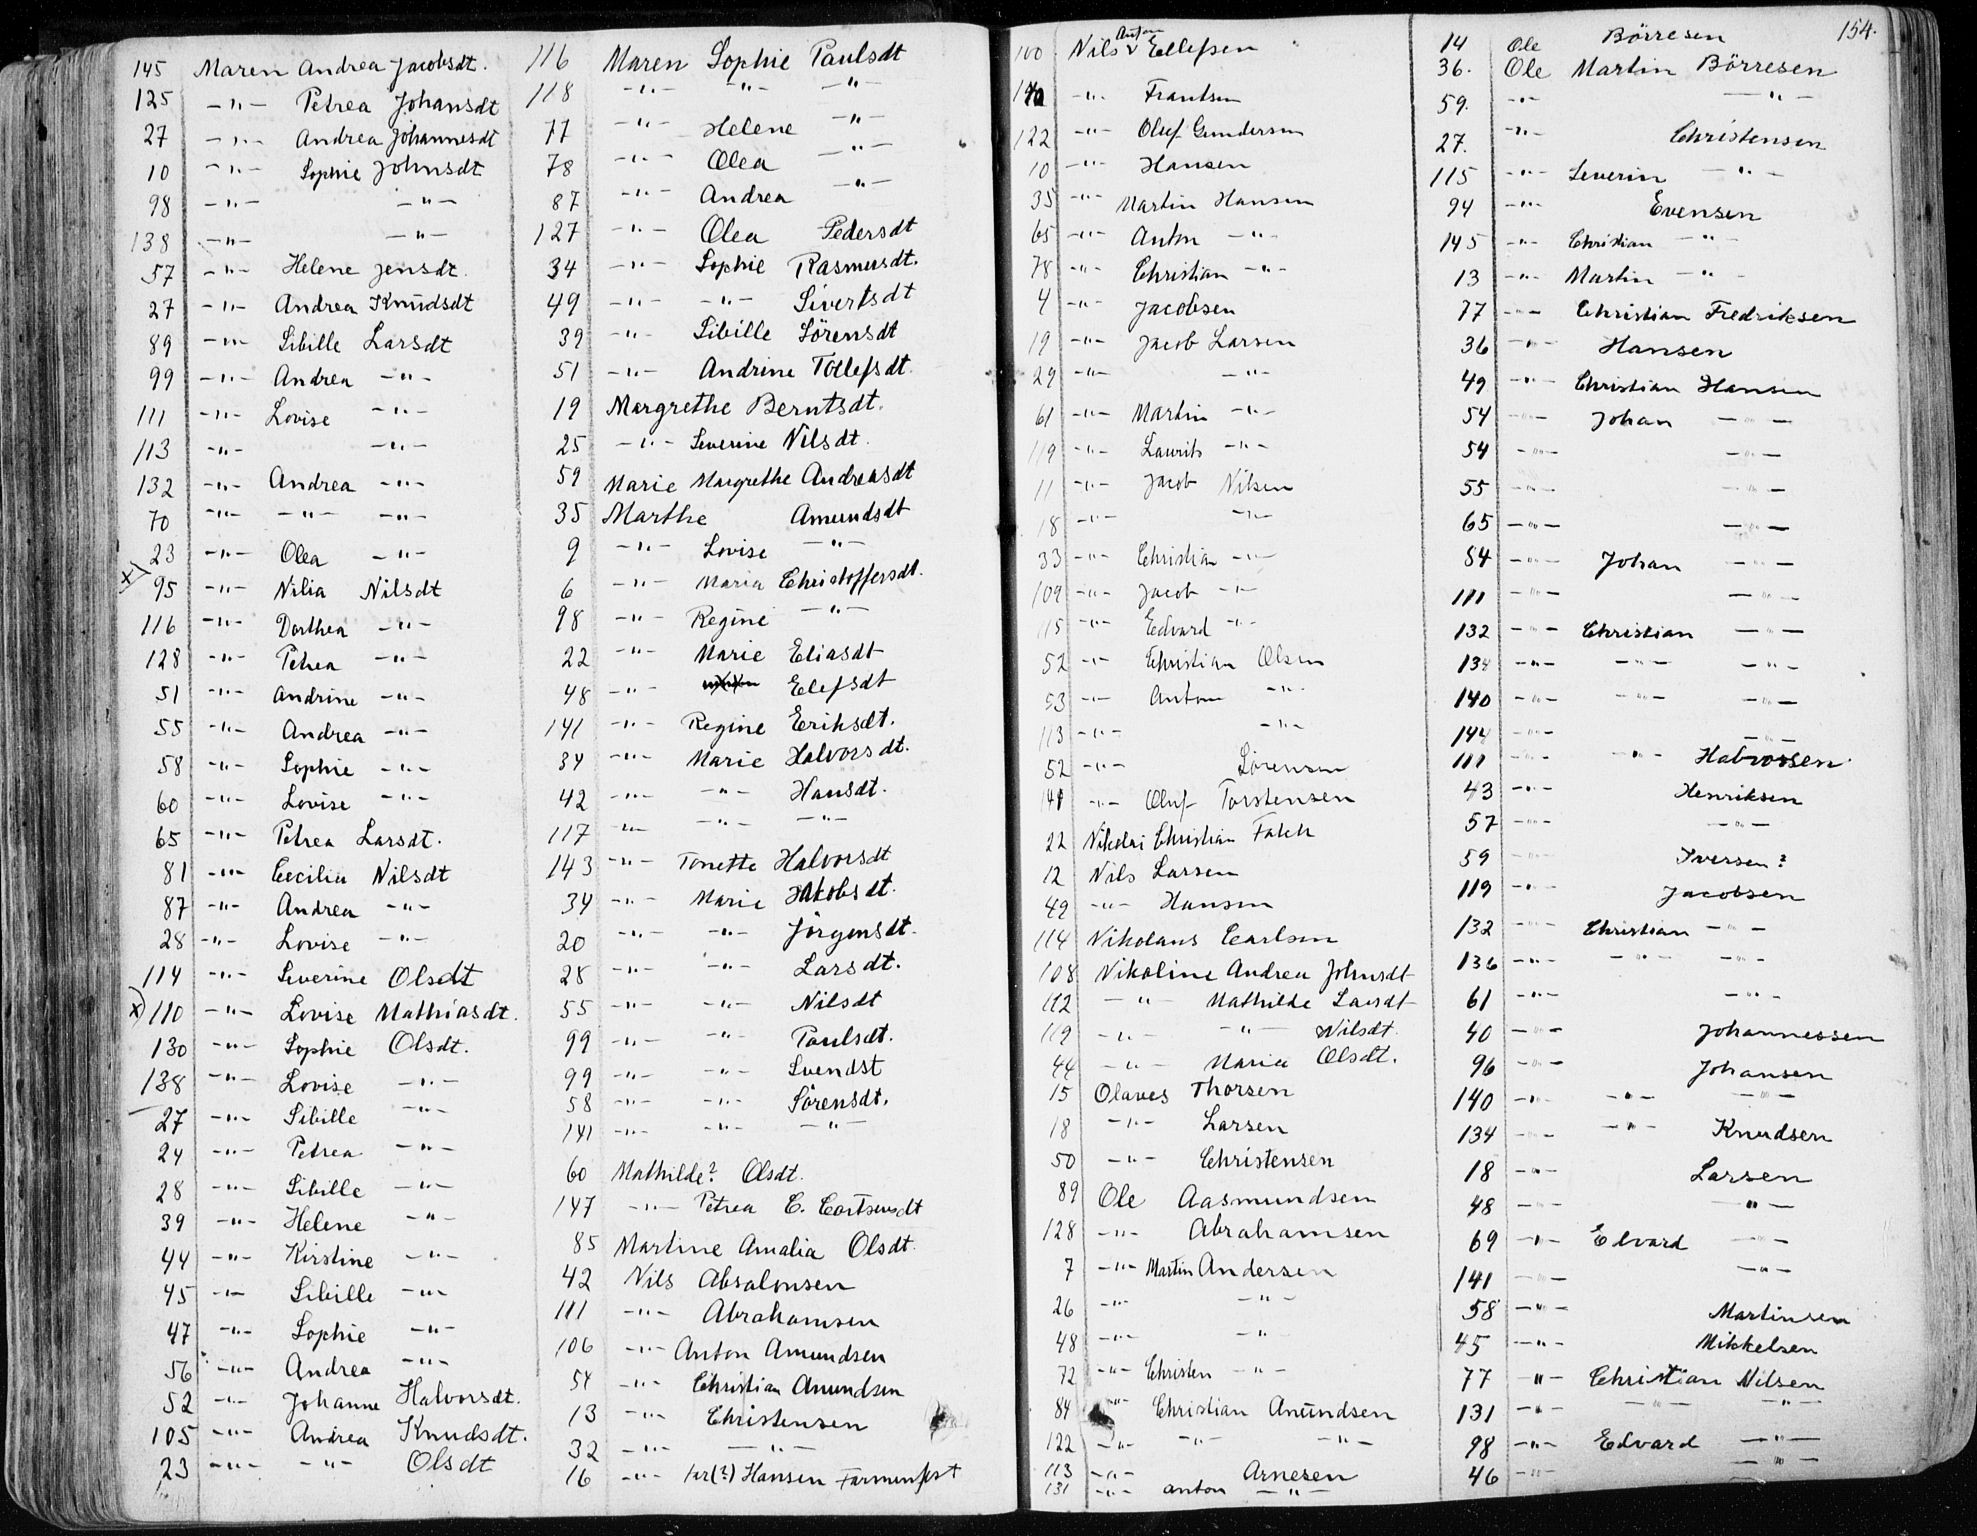 145 Maren Andrea Jacobsdt.
125 -"- Petrea Johansdt
27 -"- Andrea Johannesdt
10 -"- Sophie Johnsdt
98 -"- -"-
138 -"- -"-
57 -"- Helene Jensdt.
27 -"- Andrea Knudsdt
89 -"- Sibille Larsdt
99 -"- Andrea -"-
111 -"- Lovise -"-
113 -"- -"-
132 -"- Andrea -"-
70 -"- -"- -"-
23 -"- Olea -"-
x) 95 -"- Nilia Nilsdt
116 -"- Dorthea -"-
128 -"- Petrea -"-
51 -"- Andrine -"-
55 -"- Andrea -"-
58 -"- Sophie -"-
60 -"- Lovise -"-
65 -"- Petrea Larsdt.
81 -"- Cecilia Nilsdt
87 -"- Andrea -"-
28 -"- Lovise -"-
114 -"- Severine Olsdt
x) 110 -"- Lovise Mathiasdt.
130 -"- Sophie Olsdt.
138 -"- Lovise -"-
27 -"- Sibille -"-
24 -"- Petrea -"-
28 -"- Sibille -"-
39 -"- Helene -"-
44 -"- Kirstine -"-
45 -"- Sibille -"-
47 -"- Sophie -"-
56 -"- Andrea -"-
52 -"- Johanne Halvorsdt.
105 -"- Andrea Knudsdt.
23 -"- -"- Olsdt
116 Maren Sophie Paulsdt
118 -"- -"- -"-
77 -"- Helene -"-
78 -"- Olea -"-
87 -"- Andrea -"-
127 -"- Olea Pedersdt
34 -"- Sophie Rasmusdt.
49 -"- -"- Sivertsdt
39 -"- Sibille Sörensdt
51 -"- Andrine Tollefsdt.
19 Margrethe Berntsdt.
25 -"- Severine Nilsdt.
59 Marie Margrethe Andreasdt
35 Marthe Amundsdt
9 -"- Lovise -"-
6 -"- Maria Christoffersdt.
98 -"- Regine -"-
22 -"- Marie Eliasdt
48 -"- Elefsdt
141 -"- Regine Eriksdt.
34 -"- Marie Halvorsdt.
42 -"- -"- Hansdt.
117 -"- -"- -"-
143 -"- Tonette Halvorsdt
34 -"- Marie Jakobsdt.
20 -"- -"- Jörgensdt.
28 -"- -"- Larsdt.
55 -"- -"- Nilsdt
99 -"- -"- Paulsdt.
99 -"- -"- Svendst
58 -"- -"- Sörensdt.
141 -"- -"- -"-
60 Mathilde? Olsdt.
147 -"- Petrea C. Cortsensdt
85 Martine Amalia Olsdt.
42 Nils Absalonsen
111 -"- Abrahamsen
106 -"- Anton Amundsen
54 -"- Christian Anundsen
13 -"- Christensen
32 -"- -"-
16 -"- Hansen
100 Nils Anton Ellefsen
-"- Frantsen
122 -"- Oluf Gundersen
10 -"- Hansen
35 -"- Martin Hansen
65 -"- Anton -"-
78 -"- Christian -"-
4 -"- Jacobsen
19 -"- Jacob Larsen
29 -"- -"-
61 -"- Martin -"-
119 -"- Laurits -"-
11 -"- Jacob Nilsen
18 -"- -"-
33 -"- Christian -"-
109 -"- Jacob -"-
115 -"- Edvard -"-
52 -"- Christian Olsen
53 -"- Anton -"-
113 -"- -"-
52 -"- Sörensen
141 -"- Oluf Torstensen
22 Nikolai Christian Falch
12 Nils Larsen
49 -"- Hansen
114 Nikolaus Carlsen
108 Nikoline Andrea Johnsdt
112 -"- Mathilde Larsdt
119 -"- -"- Nilsdt.
44 -"- Maria Olsdt.
15 Olaves Thorsen
18 -"- Larsen
50 -"- Christensen
89 Ole Aasmundsen
128 -"- Abrahamsen
7 -"- Martin Andersen
26 -"- -"-
48 -"- -"-
72 -"- Christen -"-
84 -"- Christian Anundsen
122 -"- -"- -"-
113 -"- Arnesen
131 -"- Anton -"-
154.
14 Ole Börresen
36. Ole Martin Börresen
59. -"- -"-
27. -"- Christensen
115 -"- Severin -"-
94 -"- Evensen
145 -"- Christian -"-
13 -"- Martin -"-
77 -"- Christian Fredriksen
36 -"- Hansen
49 -"- Christian Hansen
54 -"- Johan -"-
54 -"- -"-
55 -"- -"-
65 -"- -"-
84 -"- Johan -"-
111 -"- -"-
132 -"- Christian -"-
134 -"- -"- -"-
140 -"- -"- -"-
144 -"- -"-
111 -"- -"- Halvorsen.
43 -"- Henriksen
57 -"- -"-
59 -"- Iversen?
119 -"- Jacobsen
132 -"- Christian -"-
136 -"- -"- -"-
61 -"- -"-
40 -"- Johannessen
96 -"- Johansen
140 -"- -"- -"-
134 -"- -"- Knudsen
18 -"- Larsen
48 -"- -"-
69 -"- Edvard -"-
141 -"- -"-
58 -"- Martinsen
45 -"- Mikkelsen
77 -"- Christian Nilsen
131 -"- -"- -"-
98 -"- Edvard -"-
46 -"- -"-